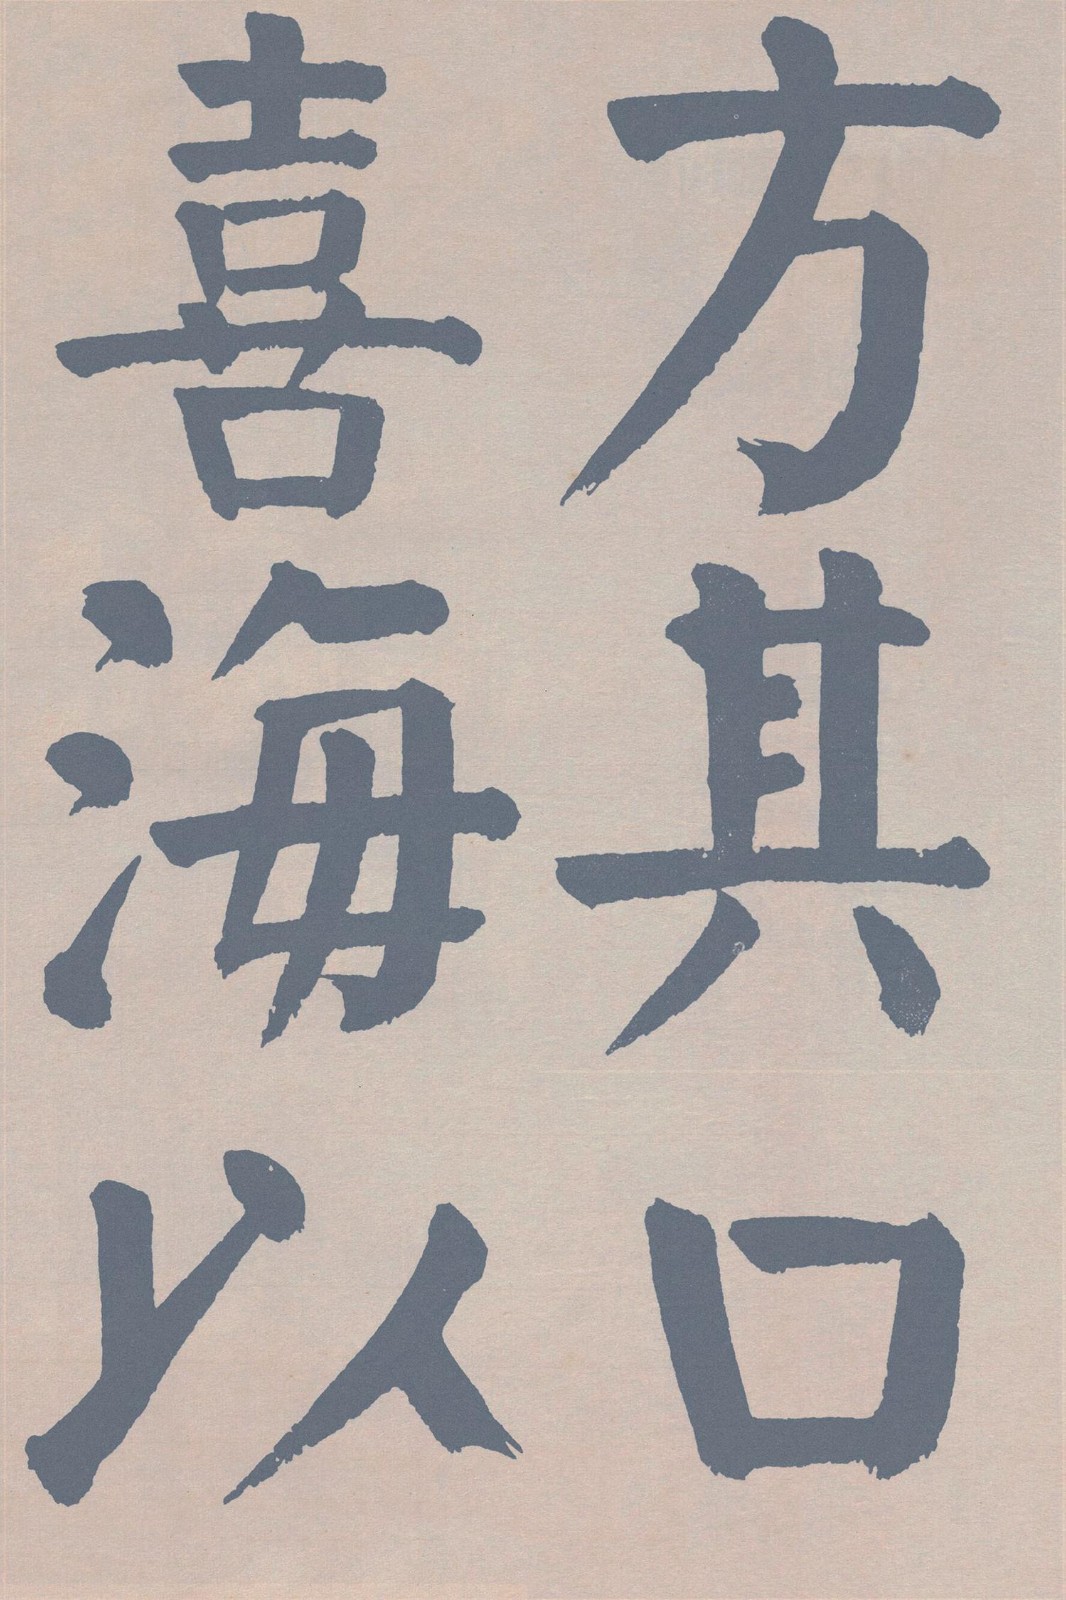 方其口
喜海以